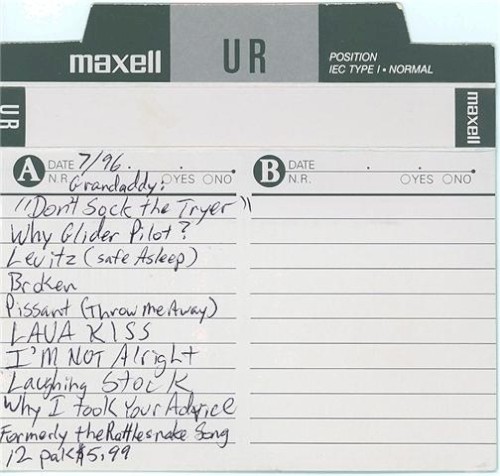 maxell UR POSITION
IEC TYPE I • NORMAL
UR maxell
A DATE 7/96. B DATE
N.R. ○YES ○NO N.R. ○YES ○NO
Grandaddy:
"Don't Sock the Tryer"
Why Glider Pilot?
Levitz (safe Asleep)
Broken
Pissant (Throw me Away)
LAVA KISS
I'M NOT Alright
Laughing Stock
Why I took Your Advice
Formerly the Rattlesnake Song
12 pak $5.99